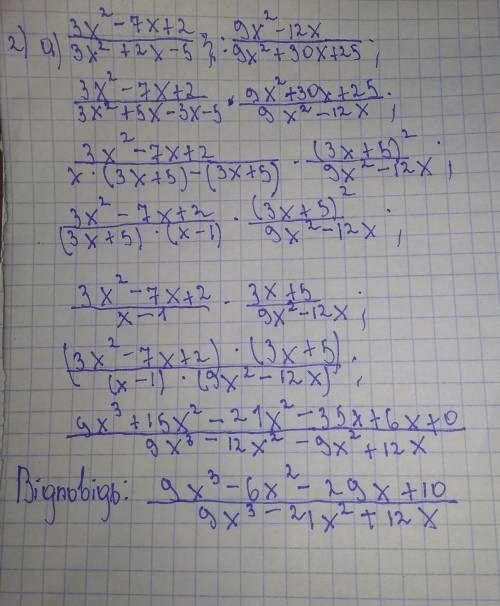 2) а) (3x² - 7x + 2)/(3x² + 2x - 5) : (9x² - 12x)/(9x² + 30x + 25);
(3x² - 7x + 2)/(3x² + 5x - 3x - 5) · (9x² + 30x + 25)/(9x² - 12x);
(3x² - 7x + 2)/(x · (3x + 5) - (3x + 5)) · (3x + 5)²/(9x² - 12x);
(3x² - 7x + 2)/((3x + 5) · (x - 1)) · (3x + 5)²/(9x² - 12x);
(3x² - 7x + 2)/(x - 1) · (3x + 5)/(9x² - 12x);
((3x² - 7x + 2) · (3x + 5))/((x - 1) · (9x² - 12x));
(9x³ + 15x² - 21x² - 35x + 6x + 10)/(9x³ - 12x² - 9x² + 12x)
Відповідь: (9x³ - 6x² - 29x + 10)/(9x³ - 21x² + 12x)